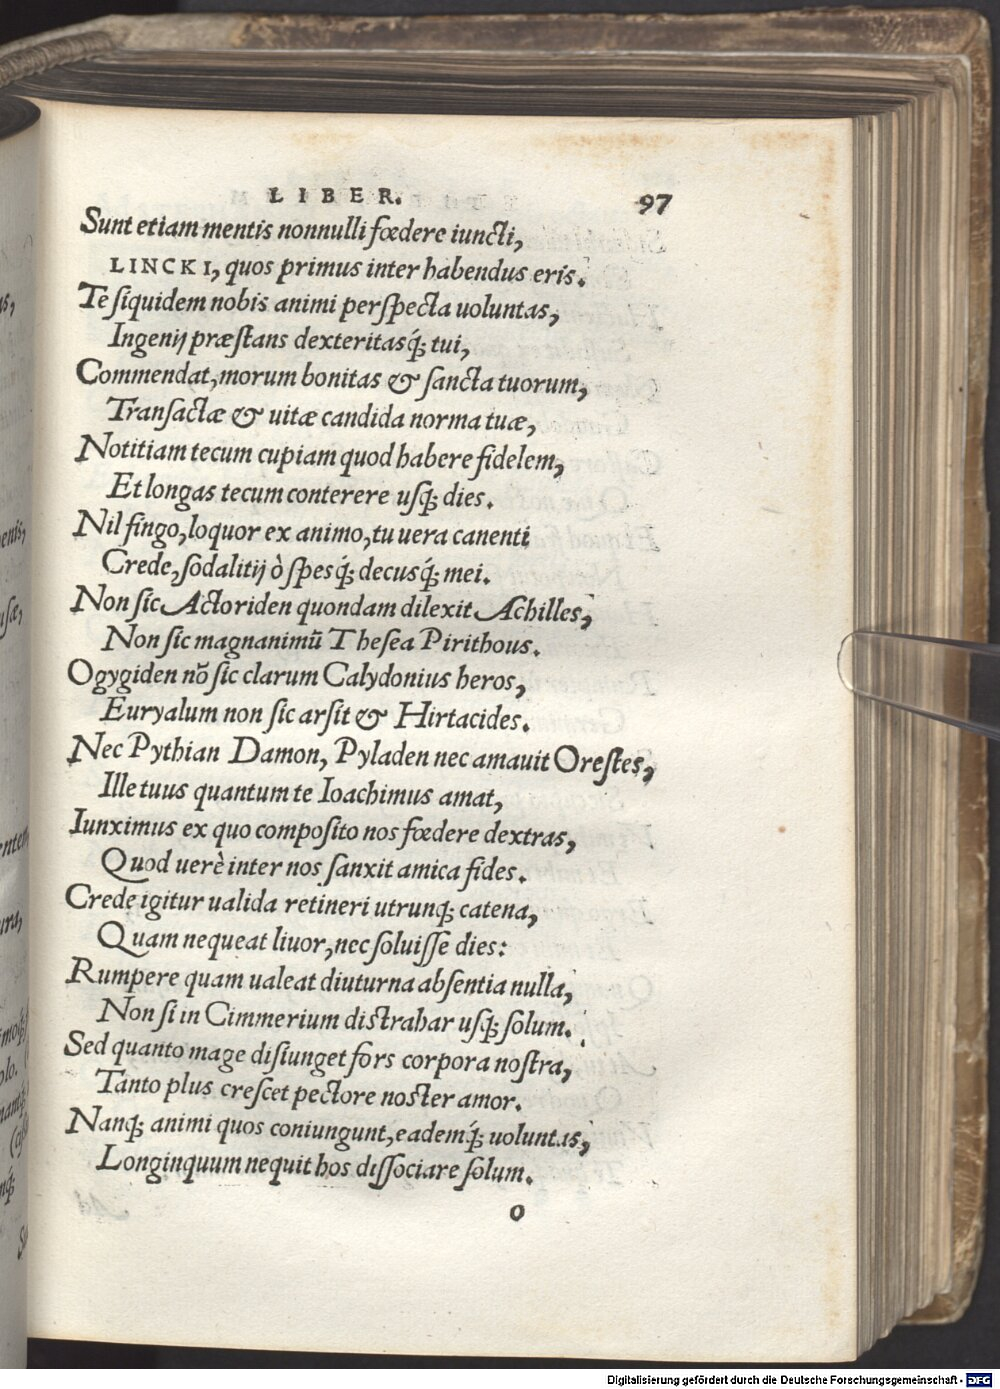 LIBER. 97
Sunt etiam mentis nonnulli fœdere iuncti,
LINCKI, quos primus inter habendus eris.
Te siquidem nobis animi perspecta uoluntas,
Ingenij præstans dexteritasq́; tui,
Commendat, morum bonitas & sancta tuorum,
Transactæ & uitæ candida norma tuæ,
Notitiam tecum cupiam quod habere fidelem,
Et longas tecum conterere usq; dies.
Nil fingo, loquor ex animo, tu uera canenti
Crede, sodalitij ò spesq́; decusq́; mei.
Non sic Actoriden quondam dilexit Achilles,
Non sic magnanimū Thesea Pirithous.
Ogygiden nō sic clarum Calydonius heros,
Euryalum non sic arsit & Hirtacides.
Nec Pythian Damon, Pyladen nec amauit Orestes,
Ille tuus quantum te Ioachimus amat,
Iunximus ex quo composito nos fœdere dextras,
Quod uerè inter nos sanxit amica fides.
Crede igitur ualida retineri utrunq; catena,
Quam nequeat liuor, nec soluisse dies:
Rumpere quam ualeat diuturna absentia nulla,
Non si in Cimmerium distrahar usq; solum.
Sed quanto mage disiunget fors corpora nostra,
Tanto plus crescet pectore noster amor.
Nanq; animi quos coniungunt, eademq́; uoluntas,
Longinquum nequit hos dissociare solum.
o
Digitalisierung gefördert durch die Deutsche Forschungsgemeinschaft - DFG